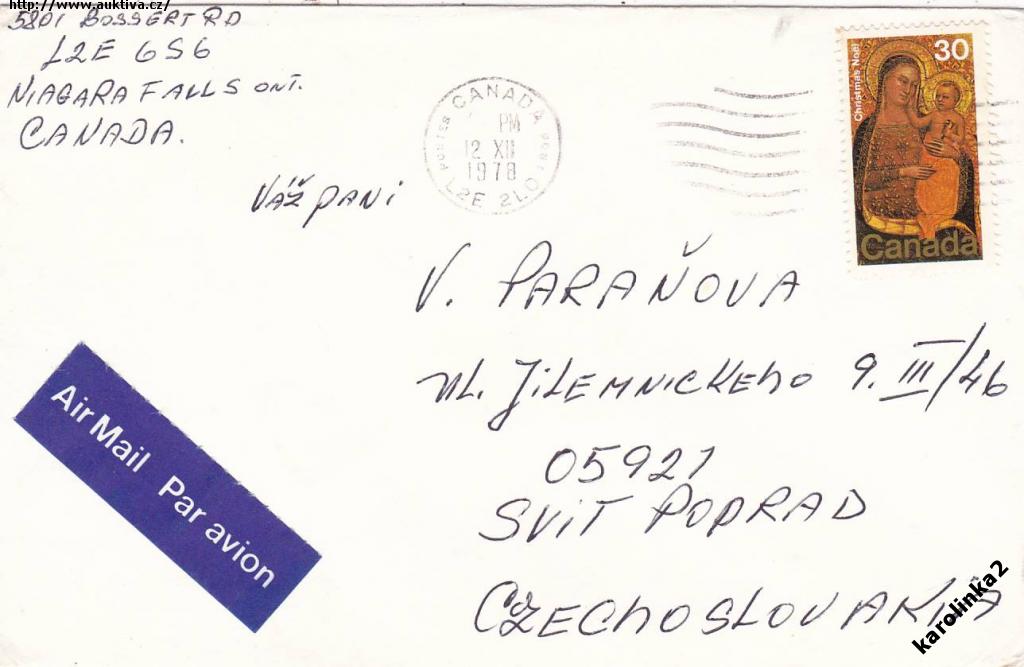 http://www.auktiva.cz/
5801 BOSSERT RD
L2E 6S6
NIAGARA FALLS ONT.
CANADA.
CANADA
PM
12 XII
1978
POSTES POST
L2E 2L0
Christmas Noël
30
Canada
VÁŽ PANI
V. PARAŇOVA
UL. JILEMNICKEHO 9. III/46
05921
SVIT POPRAD
CZECHOSLOVAKIA
Air Mail Par avion
karolinka2